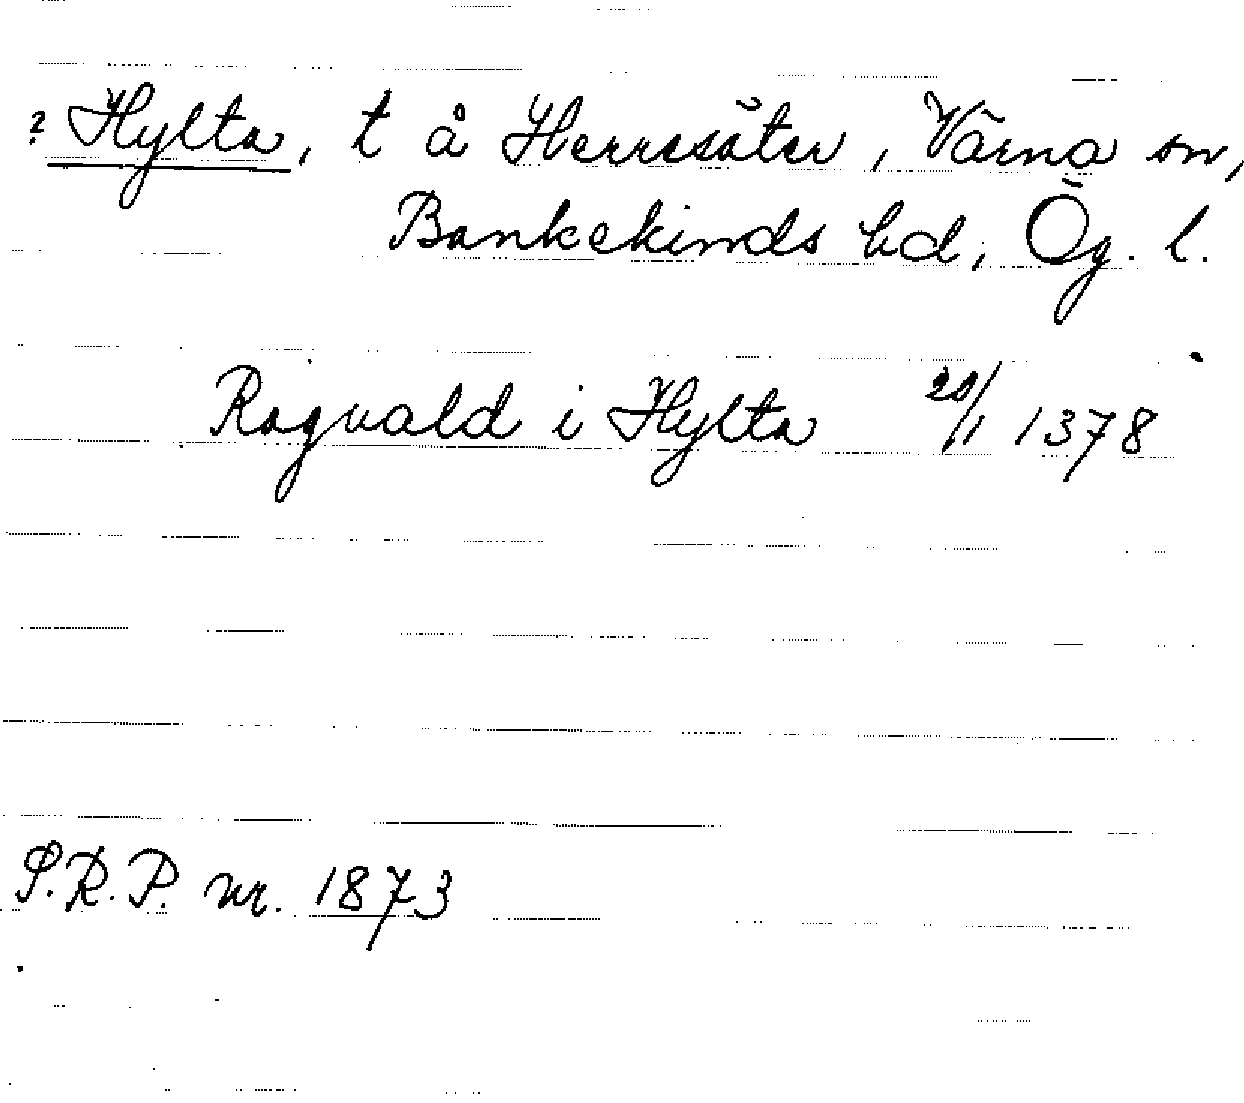 ? Hylta, t å Herrsäter, Värna sn,
Bankekinds hd, Ög. l.
Ragvald i Hylta 20/1 1378
S.R.P. nr. 1873